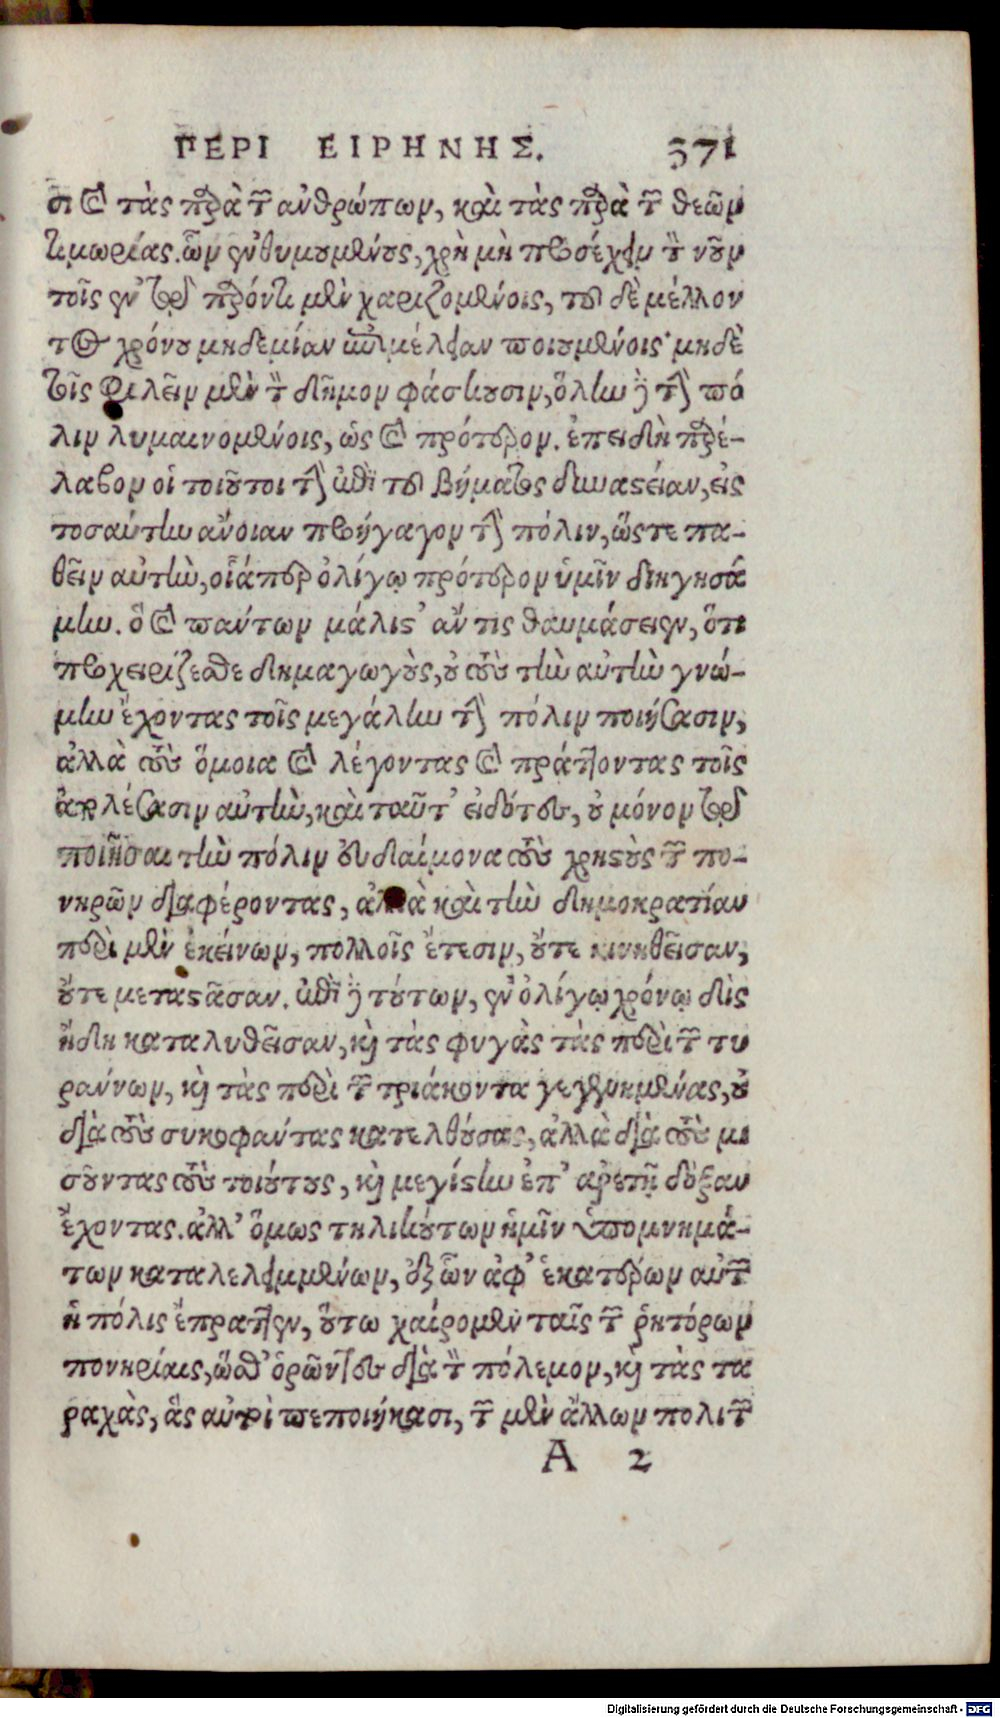 ΠΕΡΙ ΕΙΡΗΝΗΣ. 371
σι καὶ τὰς παρὰ τῶν ἀνθρώπων, καὶ τὰς παρὰ τῶν θεῶν
τιμωρίας. ὧν ἐνθυμουμένους, χρὴ μὴ προσέχειν τὸν νοῦν
τοῖς ἐν τῷ παρόντι μὲν χαριζομένοις, τοῦ δὲ μέλλον
τος χρόνου μηδεμίαν ἐπιμέλειαν ποιουμένοις· μηδὲ
τοῖς φιλεῖν μὲν τὸν δῆμον φάσκουσιν, ὅλην δὲ τὴν πό
λιν λυμαινομένοις, ὡς καὶ πρότερον. ἐπειδὴ παρέ-
λαβον οἱ τοιοῦτοι τὴν ἐπὶ τοῦ βήματος δυναστείαν, εἰς
τοσαύτην ἄνοιαν προήγαγον τὴν πόλιν, ὥστε πα-
θεῖν αὐτὴν, οἷάπερ ὀλίγῳ πρότερον ὑμῖν διηγησά
μην. ὃ καὶ πάντων μάλιστ’ ἄν τις θαυμάσειεν, ὅτι
προχειρίζεσθε δημαγωγοὺς, οὐ τοὺς τὴν αὐτὴν γνώ-
μην ἔχοντας τοῖς μεγάλην τὴν πόλιν ποιήσασιν,
ἀλλὰ τοὺς ὅμοια καὶ λέγοντας καὶ πράττοντας τοῖς
ἀπολέσασιν αὐτὴν, καὶ ταῦτ’ εἰδότες, οὐ μόνον τῷ
ποιῆσαι τὴν πόλιν εὐδαίμονα τοὺς χρηστοὺς τῶν πο-
νηρῶν διαφέροντας, ἀλλὰ καὶ τὴν δημοκρατίαν
περὶ μὲν ἐκείνων, πολλοῖς ἔτεσιν, οὔτε κινηθεῖσαν,
οὔτε μεταστᾶσαν. ἐπὶ δὲ τούτων, ἐν ὀλίγῳ χρόνῳ δὶς
ἤδη καταλυθεῖσαν, καὶ τὰς φυγὰς τὰς περὶ τῶν τυ
ράννων, καὶ τὰς περὶ τῶν τριάκοντα γεγενημένας, οὐ
διὰ τοὺς συκοφάντας κατελθούσας, ἀλλὰ διὰ τοὺς μι
σοῦντας τοὺς τοιούτους, καὶ μεγίστην ἐπ’ ἀρετῇ δόξαν
ἔχοντας. ἀλλ’ ὅμως τηλικούτων ἡμῖν ὑπομνημά-
των καταλελειμμένων, ἐξ ὧν ἀφ’ ἑκατέρων αὐτῶν
ἡ πόλις ἔπραττεν, οὕτω χαίρομεν ταῖς τῶν ῥητόρων
πονηρίαις, ὥσθ’ ὁρῶντες διὰ τὸν πόλεμον, καὶ τὰς τα
ραχὰς, ἃς αὐτοὶ πεποιήκασι, τῶν μὲν ἄλλων πολιτῶν
A 2
Digitalisierung gefördert durch die Deutsche Forschungsgemeinschaft - DFG